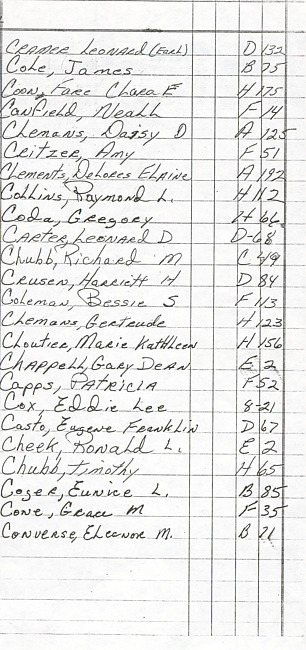 Cramer Leonard (Earl) D 132
Cole, James B 75
Coon, Fare Clara E H 175
Canfield, Neall F 14
Clemans, Daisy D A 125
Critzer, Amy F 51
Clements, Delores Elaine A 192
Collins, Raymond L. H 112
Coda, Gregory H 66
Carter, Leonard D D-68
Chubb, Richard M C 49
Crusen, Harriett H D 84
Coleman, Bessie S F 113
Clemans, Gertrude H 123
Cloutier, Marie Kathleen H 156
Chappell, Gary Dean E 2
Capps, Patricia F 52
Cox, Eddie Lee 8-21
Casto, Eugene Franklin D 67
Cheek, Ronald L. E 2
Chubb, Timothy H 65
Coger, Eunice L. B 85
Cone, Grace M F 35
Converse, Eleanor M. B 71